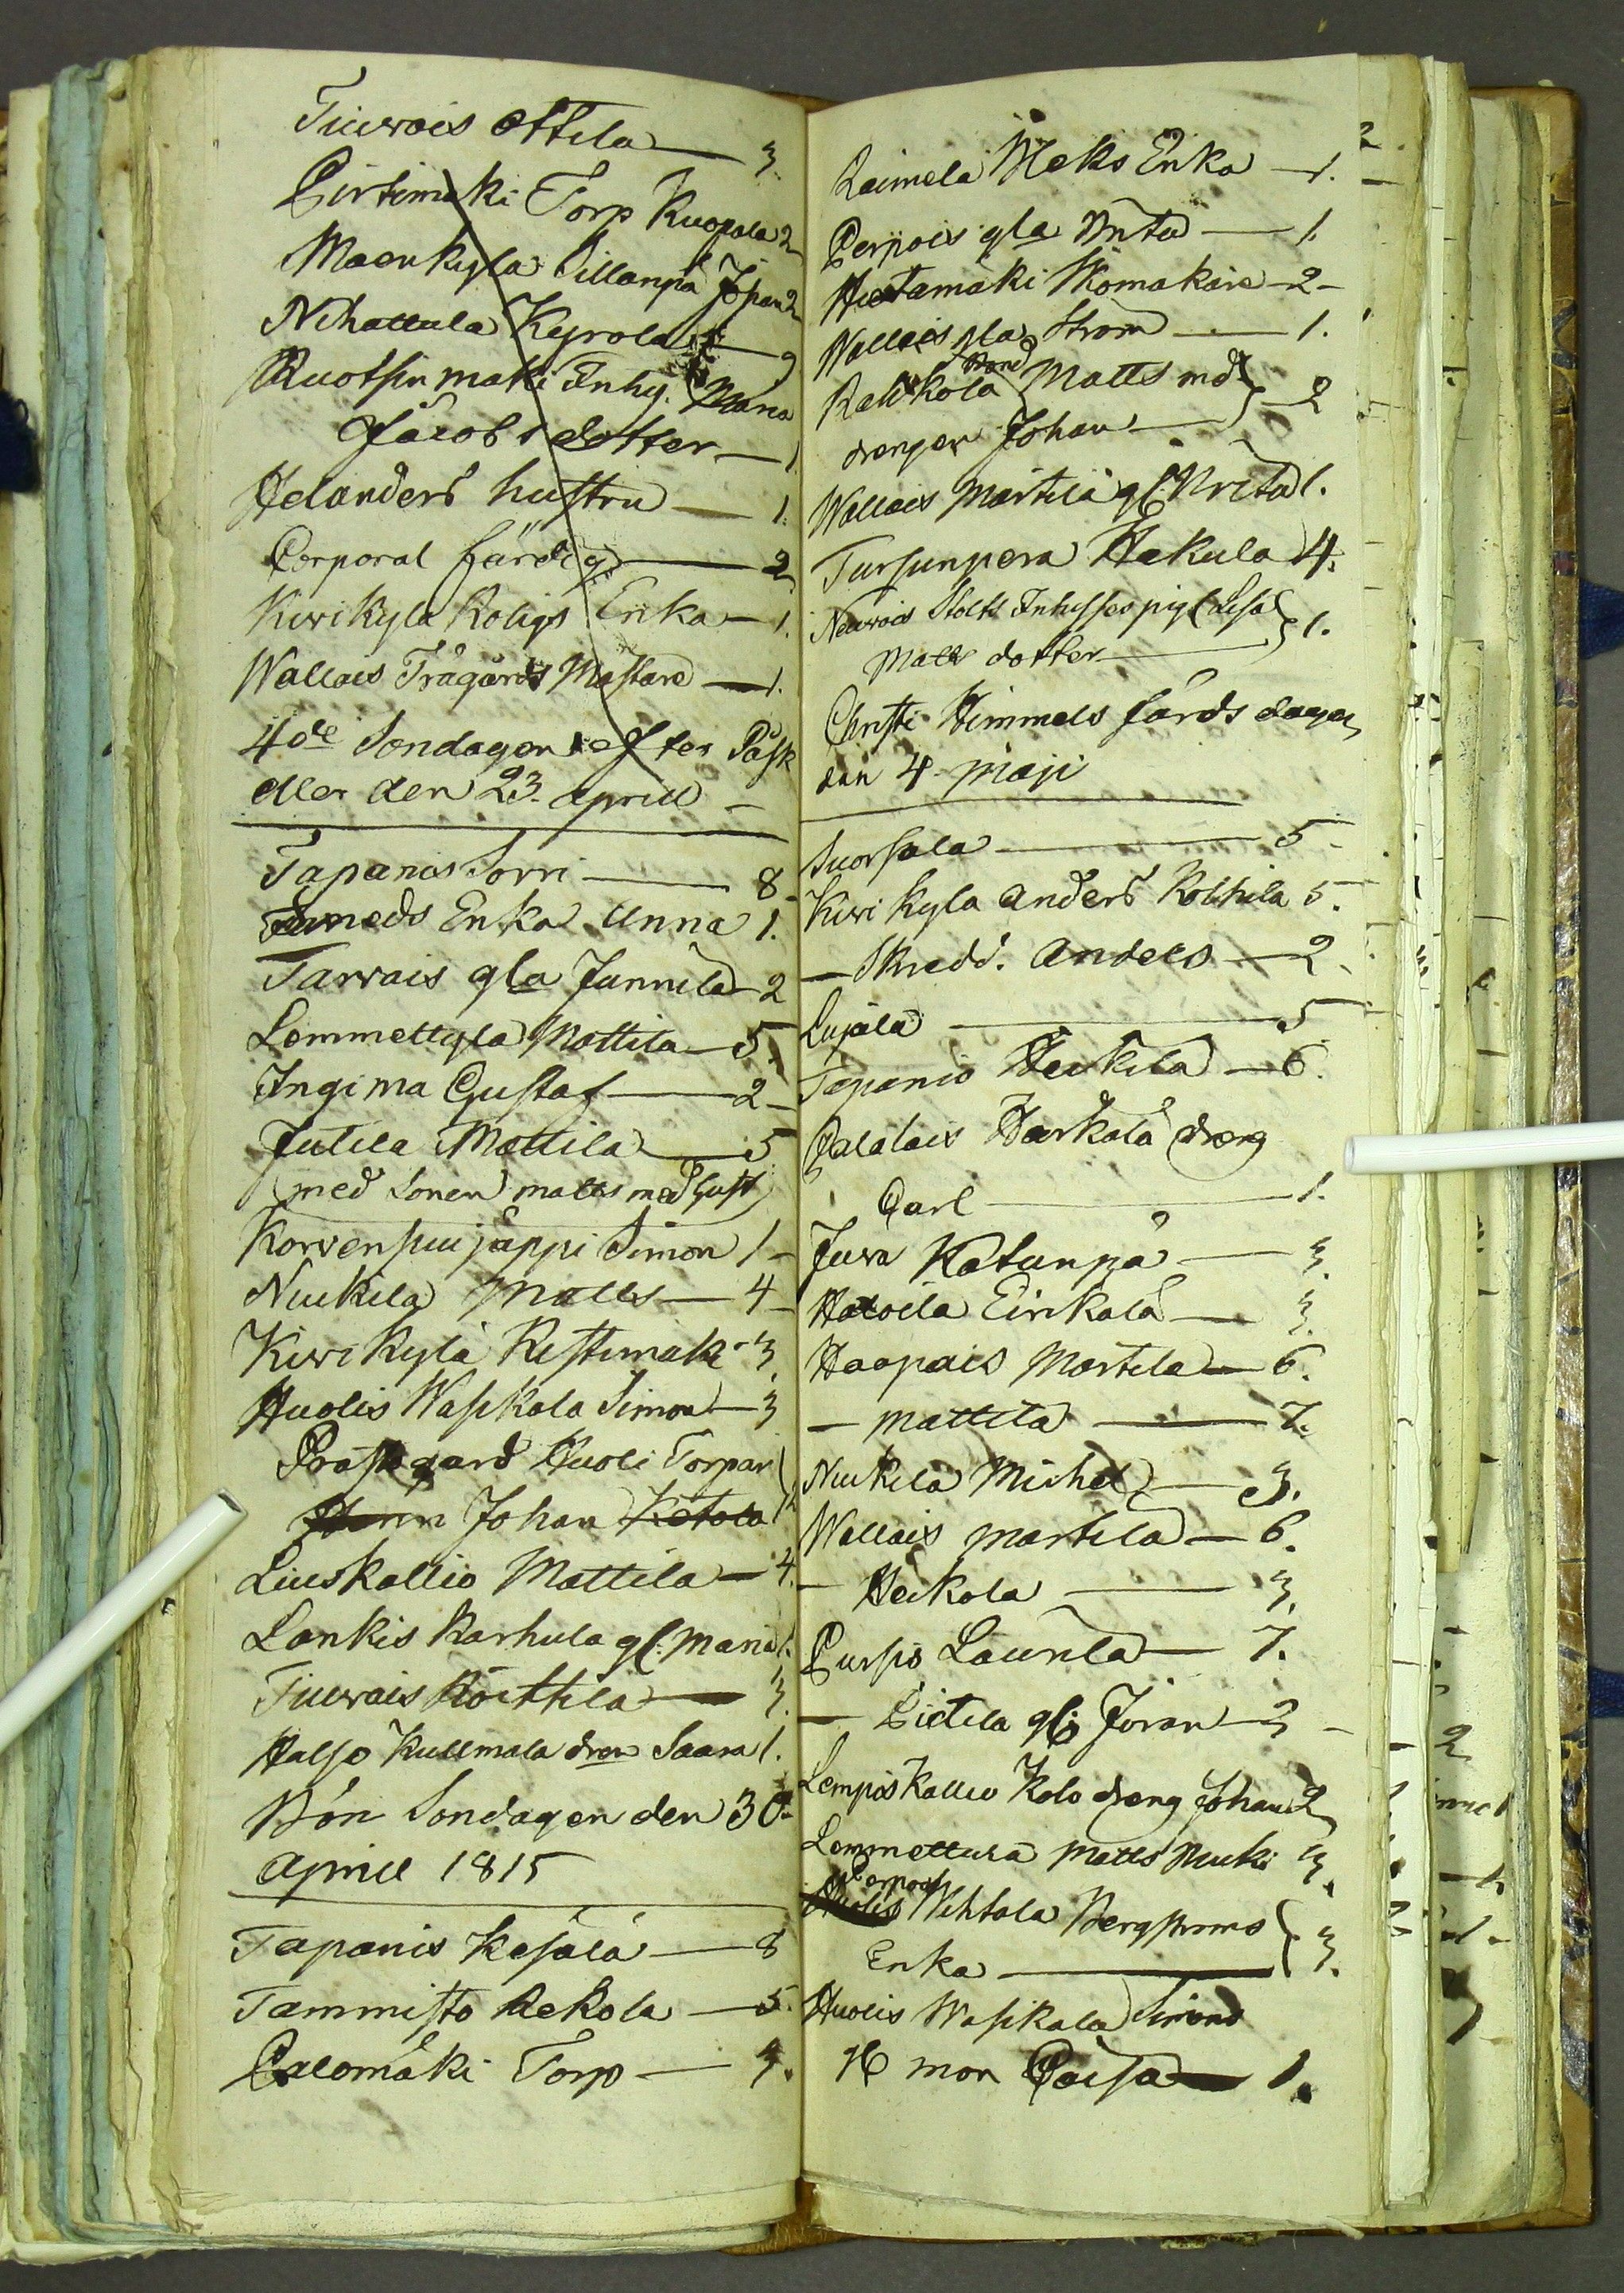 Tiuvois Ottila — 3.
Pirtimaki Torp Kuopala 2
Maenkyla Sillanpä Johan 2
Nihattula Kyrola —
Ruotsinmaki Inhy. Maria
Jacobsdotter — 1
Helanders hustru — 1.
Corporal färdig — 2
Kivikyla Roligs Enka — 1.
Wallais Trägårds Mästare — 1.
4de Söndagen efter Påsk
eller den 23. aprill —
Tapanis Sorri — 8
Enka Anna 1.
Tarvais gla Junnila — 2
Lemmettyla Mattila — 5.
Ingima Gustaf — 2 —
Jutila Mattila — 5
(med Sonen matts med hust)
Korvensuu jäppi Simon 1 —
Nuukila Matts — 4 —
Kivikylä Ristimaki — 3
Huolis Waskala Simon — 3
Prästegård Huoli Torpar
Johan Ketola
Liuskallio Mattila — 4.
Lankis Karhula gl: Maria 1.
Tiuvais Röittila — 3.
Halso Kullmala dren Saara 1.
Bön Söndagen den 30
aprill 1815
Tapanis Kesälä — 8
Tammisto Rekola — 5.
Palomäki Torp — 3.
2
Raimela Mats Enka — 1. —
Perpois gla Brita — 1.
Huctamäki Skomakare — 2 —
Wallais gla Ström — 1.
Bond
Rahkola Matts md
drengen Johan — } 2
Wallais Märtilä gl. Brita 1.
Tursunpera Hekula 4.
Neuvois Stolts Inhysses pig Lisa
Matts dotter — } 1.
Christi Himmels färds dagen
den 4 maji
Suorsala — 5 —
Kivikyla Anders Kolhila 5.
— Skredd. Anders — 2 —
Lujala — 5
Tapanis Heikila — 6.
Palalais Harkälä dreng
Carl — 1.
Juva Katunpä — 3.
Hatoila Eirikalä — 3.
Haapais Mortila — 6.
— mattila — 7.
Nuukila Michel — 3.
Wallais martila — 6.
— Heikola — 3.
Pursis Launila — 7.
— Pietila gl: Jöran — 2 —
Lempoiskallio Kolo dreng Johan 2
Lemmettura Matts Nuuki 3.
Corporal
Huolis Wihtala Bergstroms
Enka — } 3.
Huolis Waskala Simons
mor Caisa — 1.